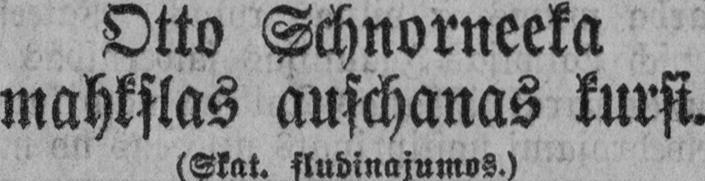 Otto Schnorneeka
mahkſlas auſchanas kurſi.
(Skat. ſludinajumos.)